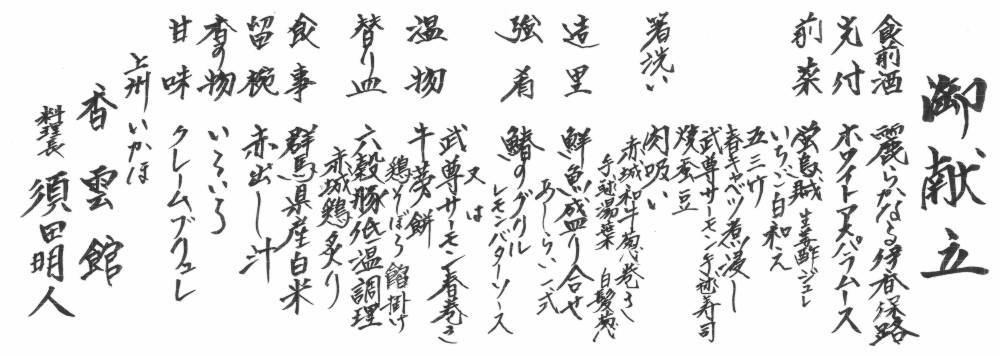 御献立
食前酒 麗らかなる伊香保路
先付 ホワイトアスパラムース
前菜 蛍烏賊 生姜酢ジュレ
いちご白和え
五三竹
春キャベツ煮浸し
武尊サーモン手毬寿司
焼蚕豆
箸洗い 肉吸い
赤城和牛葱巻き
手毬湯葉 白髪葱
造里 鮮魚盛り合せ
あしらい一式
強肴 鰆のグリル
レモンバターソース
又は
武尊サーモン春巻き
温物 牛蒡餅
鶏そぼろ餡掛け
替り皿 六穀豚低温調理
赤城鶏炙り
食事 群馬県産白米
留椀 赤出し汁
香の物 いろいろ
甘味 クレームブリュレ
上州いかほ
香雲館
料理長 須田明人